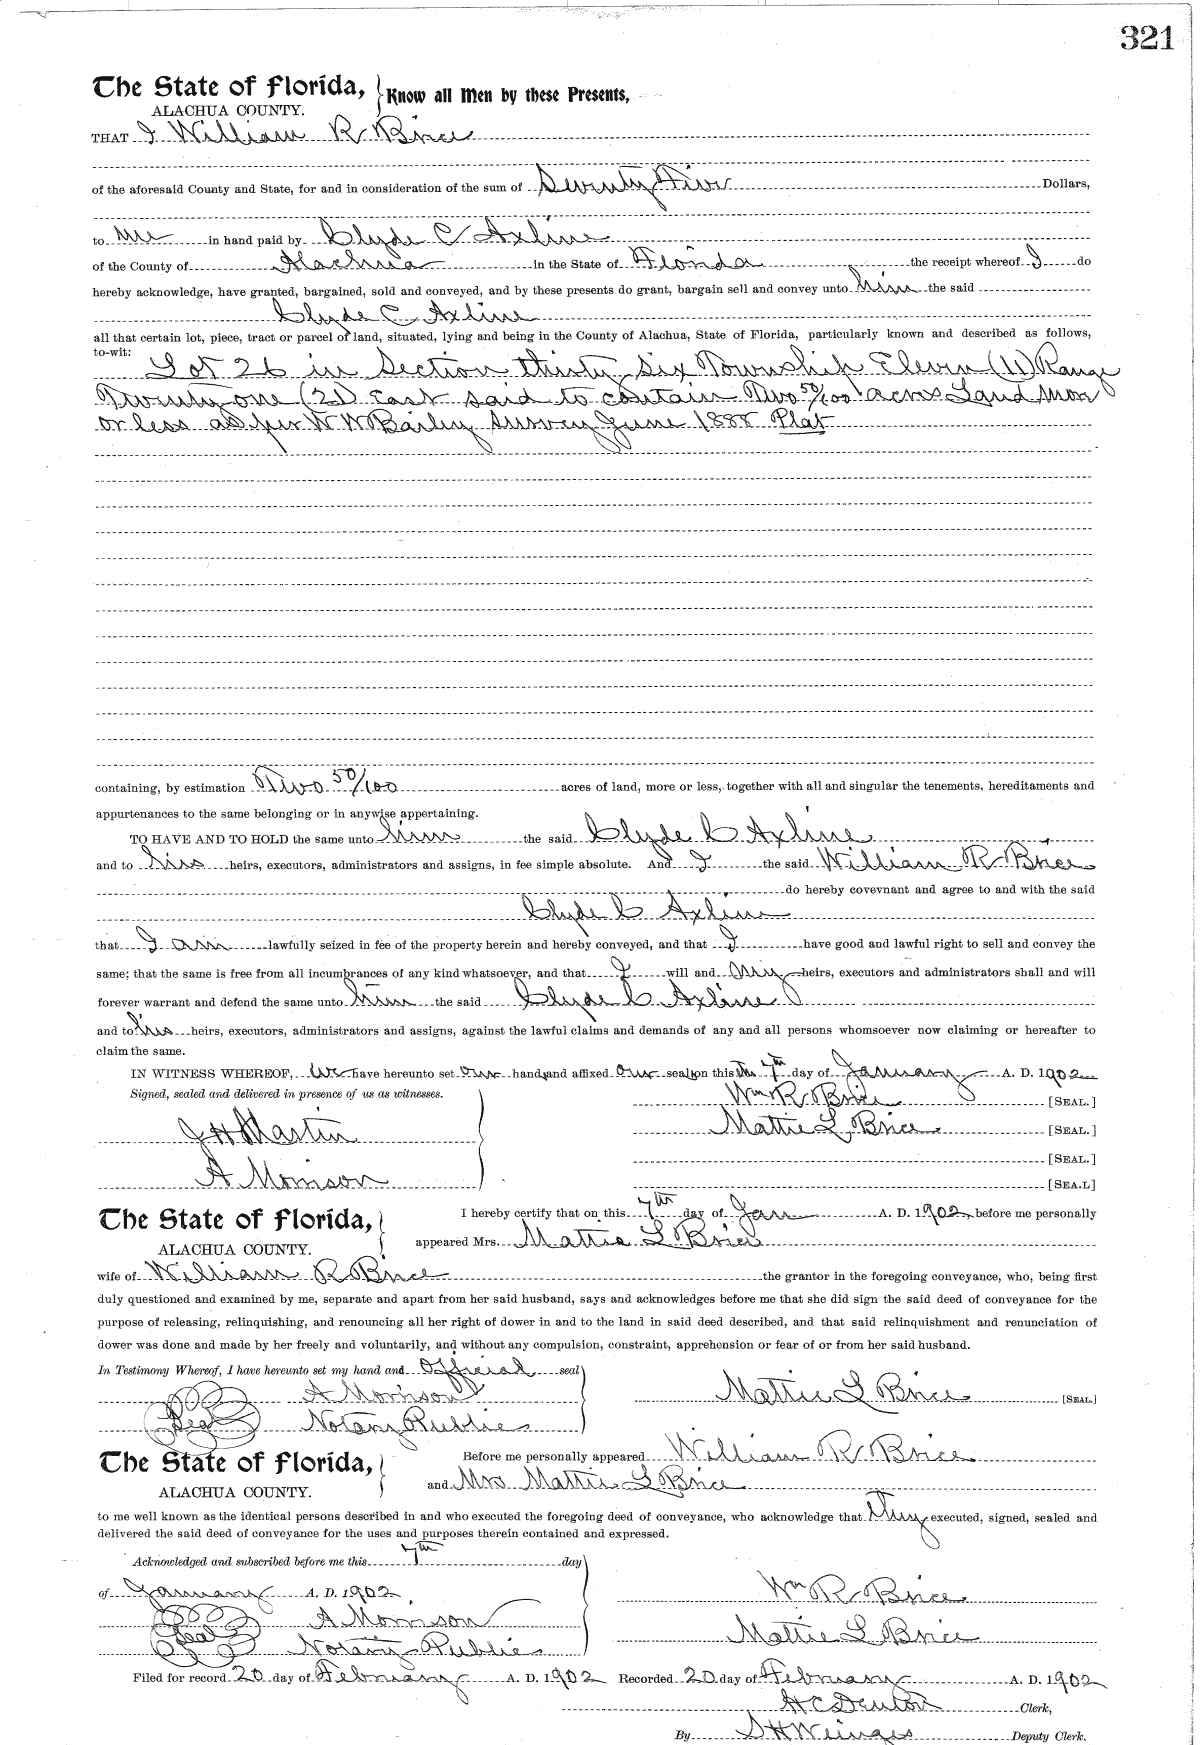 321
The State of Florida, Know all Men by these Presents,
ALACHUA COUNTY.
THAT I William R Brice
of the aforesaid County and State, for and in consideration of the sum of Seventy Five Dollars,
to me in hand paid by Clyde C Axline
of the County of Alachua in the State of Florida the receipt whereof I do
hereby acknowledge, have granted, bargained, sold and conveyed, and by these presents do grant, bargain sell and convey unto him the said
Clyde C Axline
all that certain lot, piece, tract or parcel of land, situated, lying and being in the County of Alachua, State of Florida, particularly known and described as follows,
to-wit:
Lot 26 in Section thirty six Township Eleven (11) Range
Twenty one (21) East said to contain Two 50/100 acres Land more
or less as per W W Bailey survey June 1888 Plat
containing, by estimation Two 50/100 acres of land, more or less, together with all and singular the tenements, hereditaments and
appurtenances to the same belonging or in anywise appertaining.
TO HAVE AND TO HOLD the same unto him the said Clyde C Axline
and to his heirs, executors, administrators and assigns, in fee simple absolute. And I the said William R Brice
do hereby covevnant and agree to and with the said
Clyde C Axline
that I am lawfully seized in fee of the property herein and hereby conveyed, and that I have good and lawful right to sell and convey the
same; that the same is free from all incumbrances of any kind whatsoever, and that I will and my heirs, executors and administrators shall and will
forever warrant and defend the same unto him the said Clyde C Axline
and to his heirs, executors, administrators and assigns, against the lawful claims and demands of any and all persons whomsoever now claiming or hereafter to
claim the same.
IN WITNESS WHEREOF, we have hereunto set our hands and affixed our seals on this the 7th day of January A. D. 1902
Signed, sealed and delivered in presence of us as witnesses. Wm R Brice [SEAL.]
J H Martin Mattie L Brice [SEAL.]
[SEAL.]
A Morrison [SEA.L]
The State of Florida, I hereby certify that on this 7th day of Jan A. D. 1902 before me personally
ALACHUA COUNTY. appeared Mrs. Mattie L Brice
wife of William R Brice the grantor in the foregoing conveyance, who, being first
duly questioned and examined by me, separate and apart from her said husband, says and acknowledges before me that she did sign the said deed of conveyance for the
purpose of releasing, relinquishing, and renouncing all her right of dower in and to the land in said deed described, and that said relinquishment and renunciation of
dower was done and made by her freely and voluntarily, and without any compulsion, constraint, apprehension or fear of or from her said husband.
In Testimony Whereof, I have hereunto set my hand and Official seal
A Morrison Mattie L Brice [SEAL.]
Seal Notary Public
The State of Florida, Before me personally appeared William R Brice
ALACHUA COUNTY. and Mrs Mattie L Brice
to me well known as the identical persons described in and who executed the foregoing deed of conveyance, who acknowledge that They executed, signed, sealed and
delivered the said deed of conveyance for the uses and purposes therein contained and expressed.
Acknowledged and subscribed before me this 7th day
of January A. D. 1902 Wm R Brice
A Morrison
Seal Mattie L Brice
Notary Public
Filed for record 20 day of February A. D. 1902 Recorded 20 day of February A. D. 1902
H C Denton Clerk,
By S H Wienges Deputy Clerk.